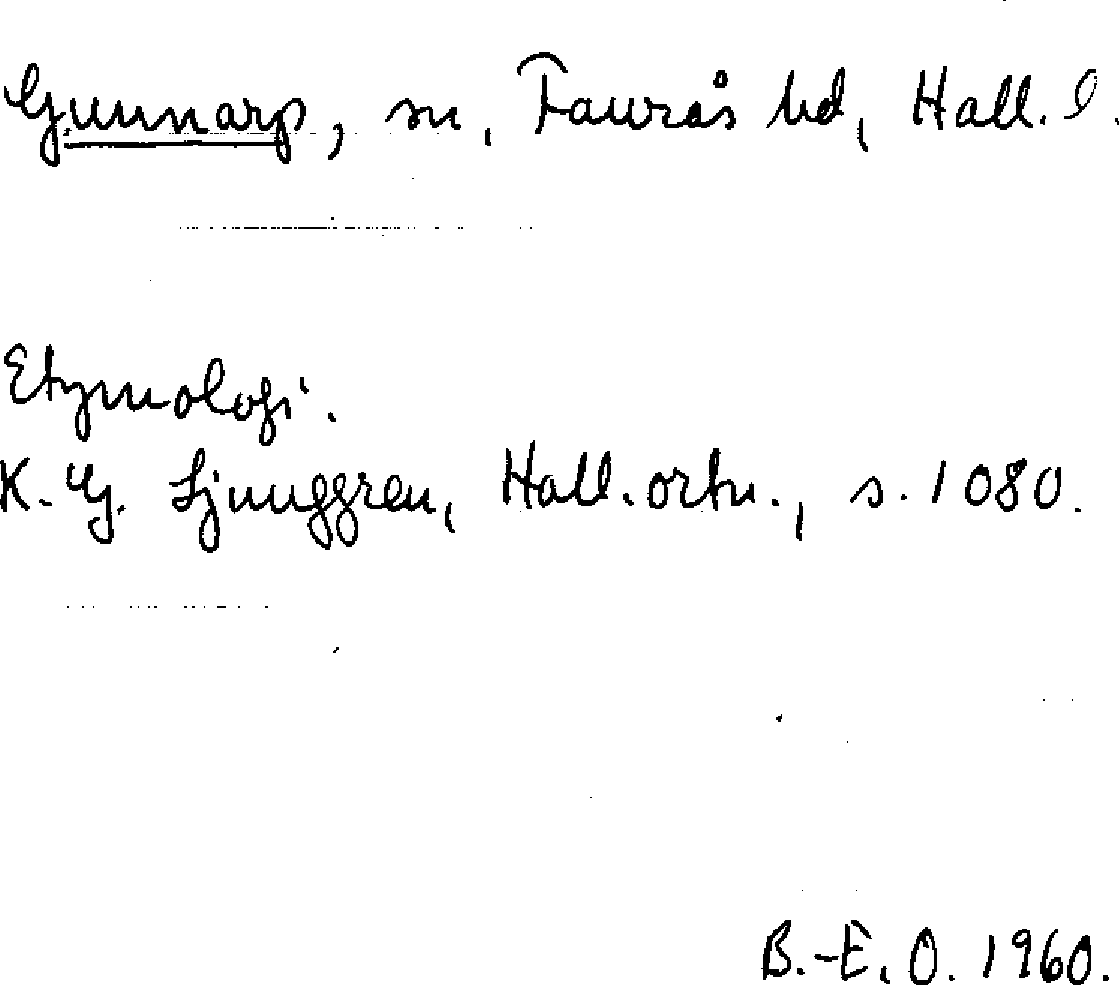 Gunnarp, sn, Faurås hd, Hall. l.
Etymologi.
K. G. Ljunggren, Hall. ortn., s. 1080.
B.-E. O. 1960.